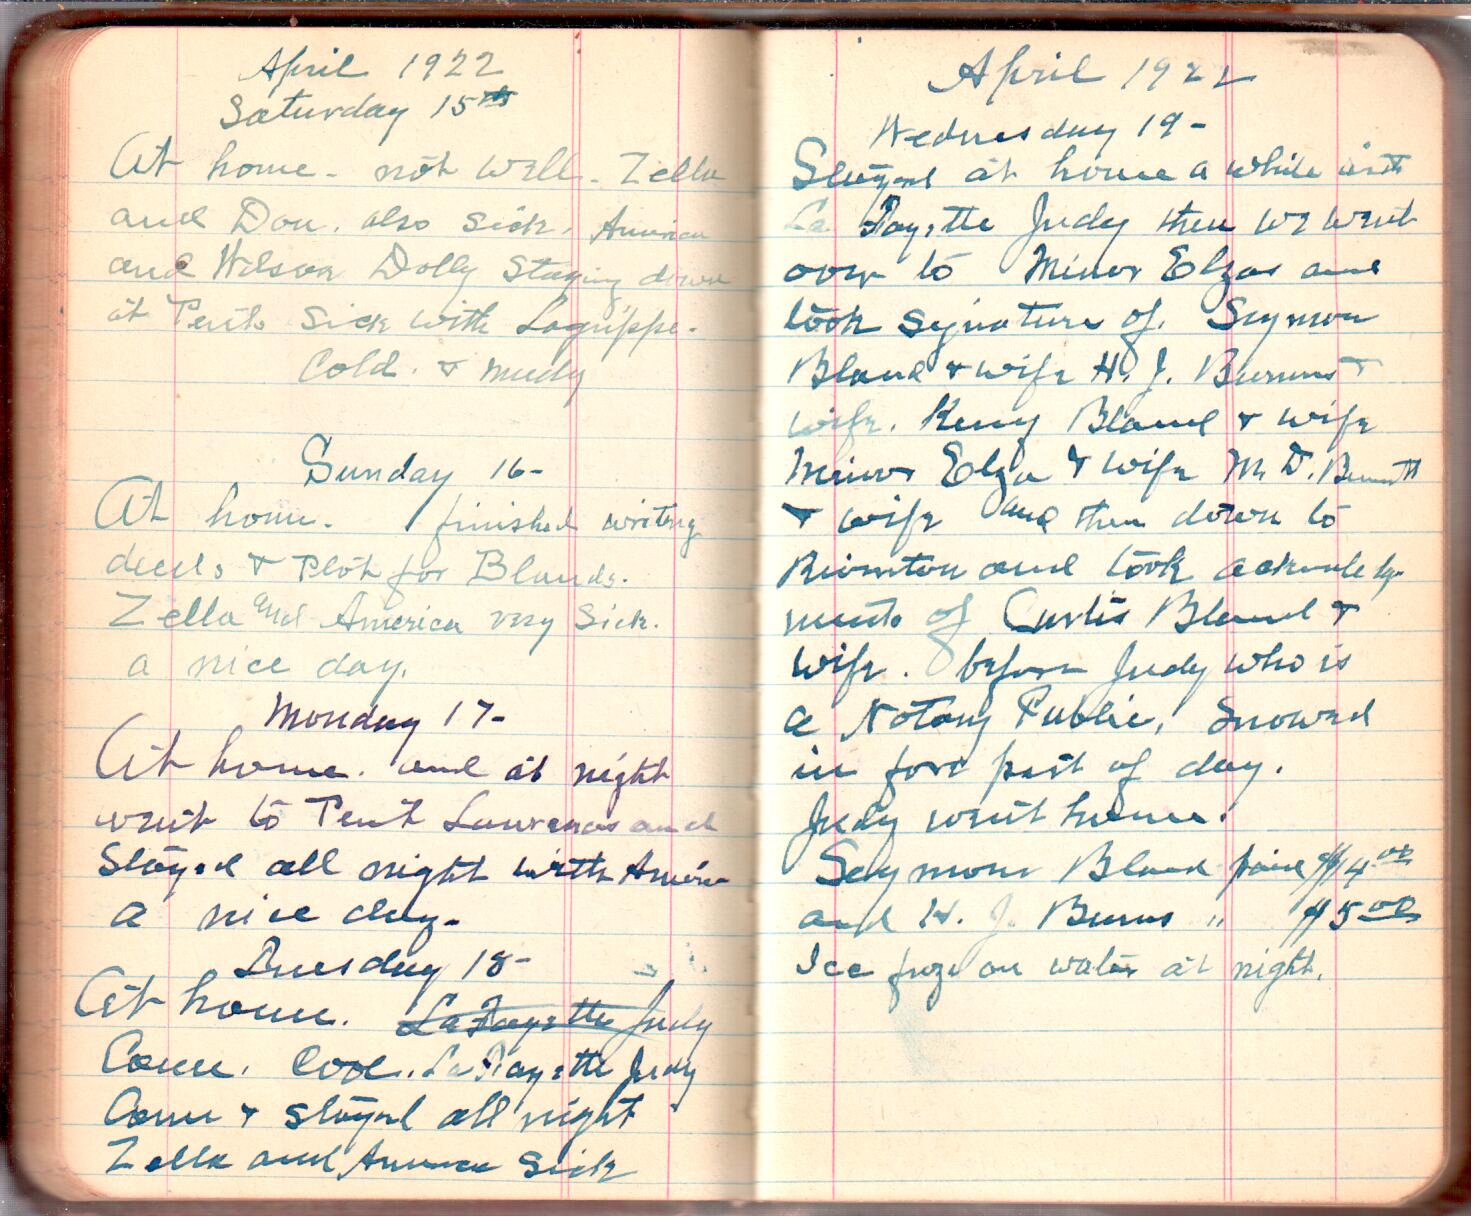 April 1922
Saturday 15th
At home - not well - Zella
and Don. also sick. America
and Wilson Dolly Staying down
at Tent. Sick with Lagrippe.
Cold. & mudy
Sunday 16-
At home. finished writing
deeds & Plot for Blands.
Zella and America very Sick.
a nice day.
Monday 17-
At home. and at night
went to Tent Lawrences and
Stayed all night with America
a nice day-
Tuesday 18-
At home. LaFayette Judy
Came. Cool. LaFayette Judy
Came & stayed all night
Zella and America Sick
April 1922
Wednesday 19-
Stayed at home a while with
La Fayette Judy then we went
over to Minor Elzas and
took signature of. Seymour
Bland & wife H. J. Burns &
wife. Bland & wife
Minor Elza & wife M. D.
& wife and then down to
and took acknowledg-
ments of Curtis Bland &
wife. before Judy who is
a Notary Public. Snowed
in fore part of day.
Judy went home.
Seymour Bland paid $14.00
and H. J. Burns " $5.00
Ice froze on water at night.